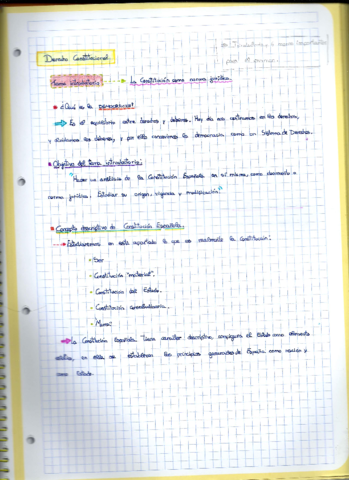 Derecho Constitucional.
Tema introductorio: → La Constitución como norma jurídica.
• ¿Qué es la democracia?
Es el equilibrio entre derechos y deberes. Hoy día nos centramos en los derechos,
y olvidamos los deberes, y por ello conocemos la democracia como un Sistema de Derechos.
• Objetivo del tema introductorio:
Hacer un análisis de la Constitución Española en sí misma, como documento o
norma jurídica. Estudiar su origen, vigencia y modificación.
• Concepto descriptivo de Constitución Española.
→ Estudiaremos en este apartado lo que es realmente la Constitución:
• Ser
• Constitución "material".
• Constitución del Estado.
• Constitución
•
→ La Constitución Española tiene carácter descriptivo, configura el Estado como
en ella, se establecen los principios de España como nación y
como Estado.